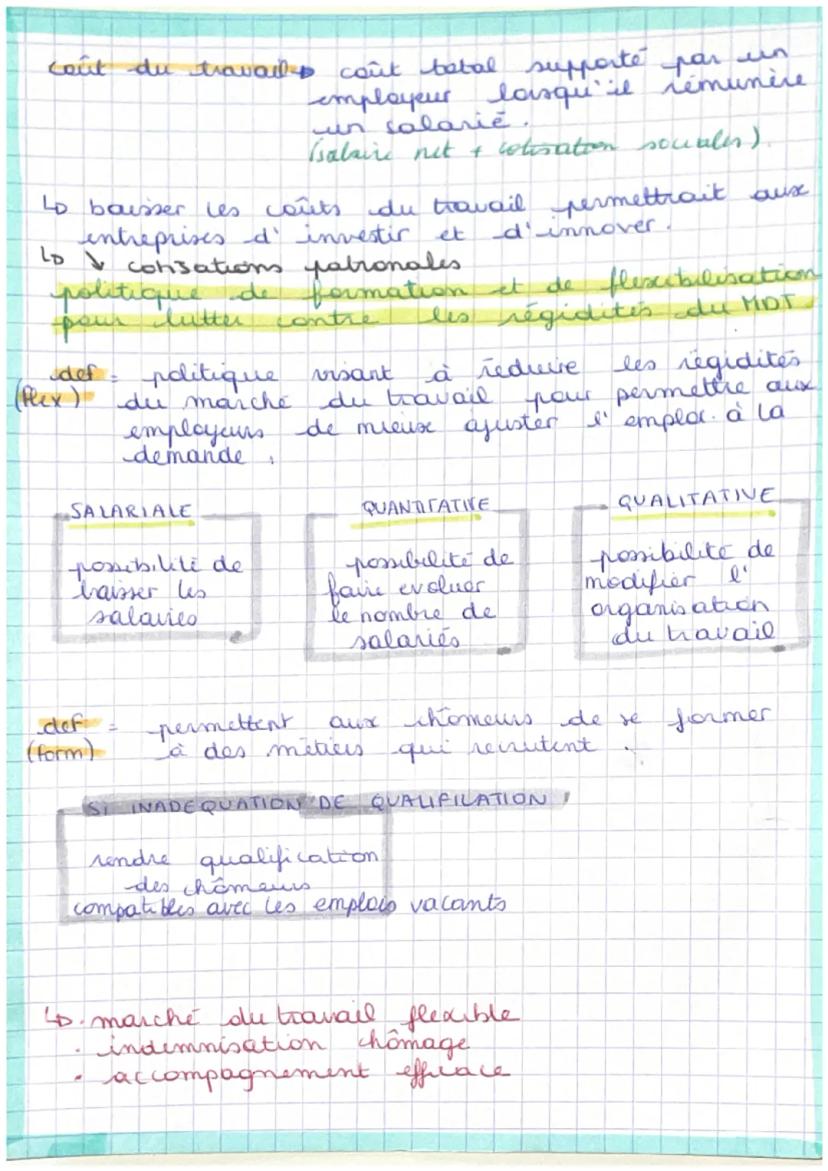 coût du travail → coût total supporté par un
employeur lorsqu'il rémunère
un salarié.
(salaire net + cotisation sociales).
↳ baisser les coûts du travail permettrait aux
entreprises d'investir et d'innover.
↳ ↘ cotisations patronales
politique de formation et de flexibilisation
pour lutter contre les régidités du MDT
def = politique visant à réduire les régidités
(flex) du marché du travail pour permettre aux
employeurs de mieux ajuster l'emploi à la
demande.
SALARIALE
possibilité de
baisser les
salaires
QUANTITATIVE
possibilité de
faire evoluer
le nombre de
salariés
QUALITATIVE
possibilité de
modifier l'
organisation
du travail
def = permettent aux chômeurs de se former
(form) à des métiers qui recrutent.
SI INADEQUATION DE QUALIFILATION
rendre qualification
des chômeurs
compatibles avec les emplois vacants
↳ . marché du travail flexible
. indemnisation chômage
. accompagnement efficace